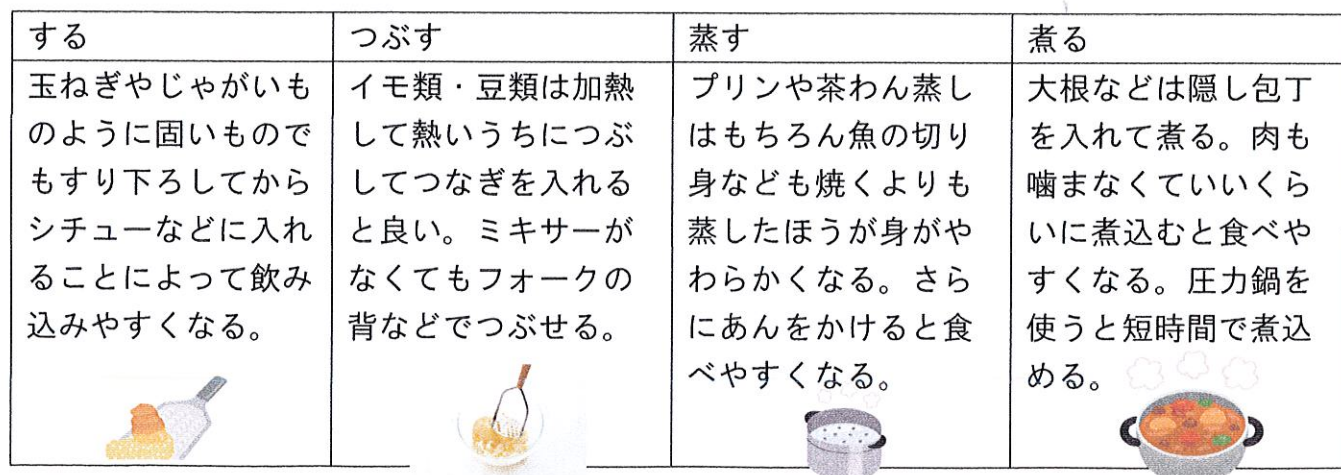 する
玉ねぎやじゃがいも
のように固いもので
もすり下ろしてから
シチューなどに入れ
ることによって飲み
込みやすくなる。
つぶす
イモ類・豆類は加熱
して熱いうちにつぶ
してつなぎを入れる
と良い。ミキサーが
なくてもフォークの
背などでつぶせる。
蒸す
プリンや茶わん蒸し
はもちろん魚の切り
身なども焼くよりも
蒸したほうが身がや
わらかくなる。さら
にあんをかけると食
べやすくなる。
煮る
大根などは隠し包丁
を入れて煮る。肉も
噛まなくていいくら
いに煮込むと食べや
すくなる。圧力鍋を
使うと短時間で煮込
める。